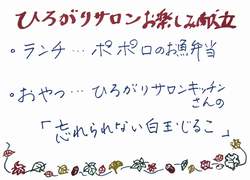 ひろがりサロンお楽しみ献立
・ランチ…ポポロのお魚弁当
・おやつ…ひろがりサロンキッチン
さんの
「忘れられない白玉じるこ」